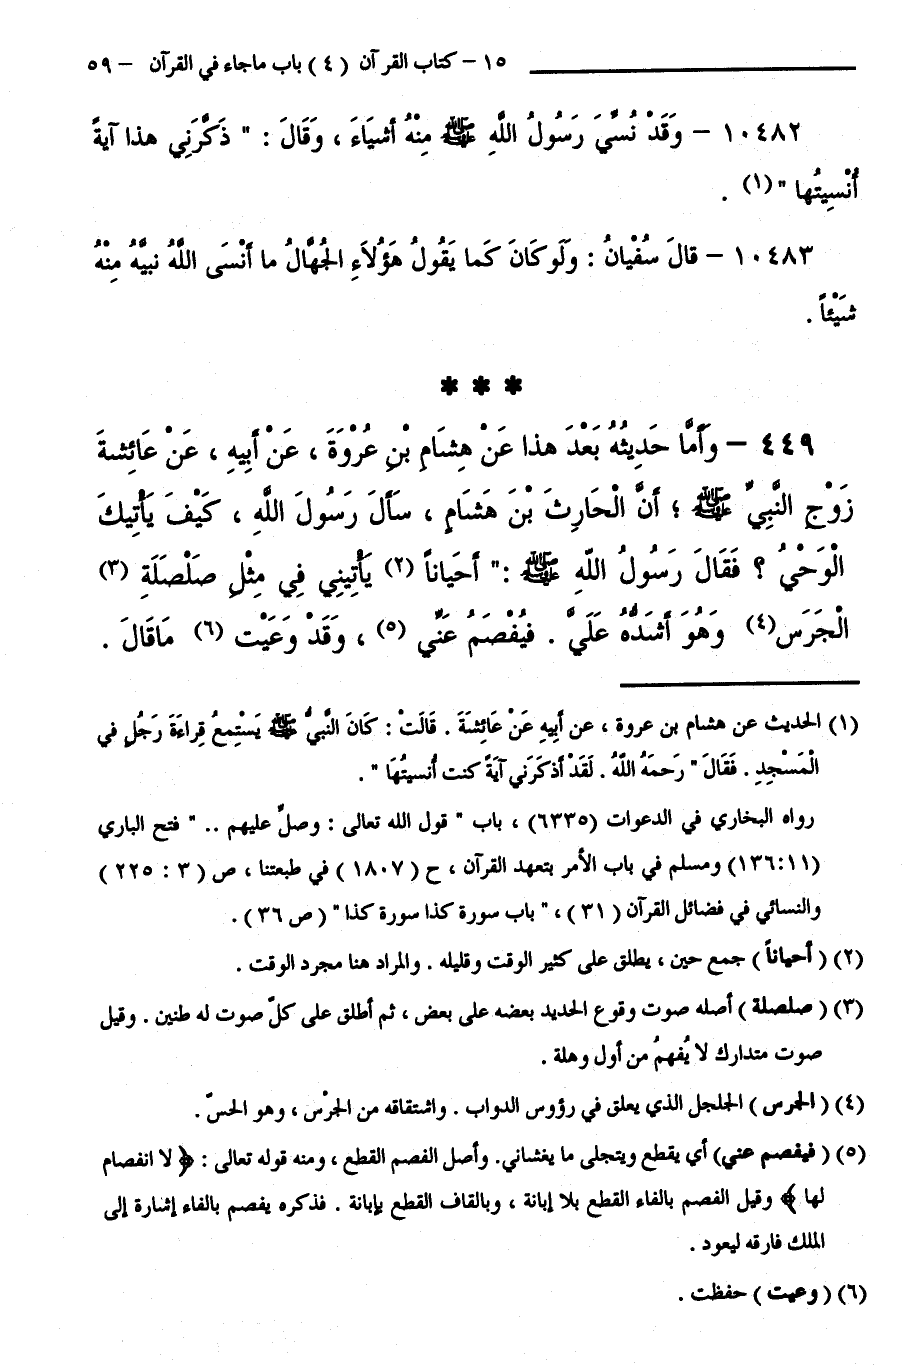 ١٥ - كتاب القرآن ( ٤ ) باب ماجاء في القرآن - ٥٩
١٠٤٨٢ - وَقَدْ نُسِّيَ رَسُولُ اللَّهِ ﷺ مِنْهُ أشيَاءَ ، وَقَالَ : " ذَكَّرَنِي هذا آيةً
أُنْسِيتُها "(١) .
١٠٤٨٣ - قالَ سُفْيانُ : ولَو كَانَ كَما يَقُولُ هَؤُلاَءِ الجُهَّالُ ما أنْسَى اللَّهُ نبيَّهُ مِنْهُ
شَيْئاً .
* * *
٤٤٩ - وَأمَّا حَدِيثُهُ بَعْدَ هذا عَنْ هِشَامِ بْنِ عُرْوَةَ ، عَنْ أبِيهِ ، عَنْ عَائِشةَ
زَوْجِ النَّبِيِّ ﷺ ؛ أنَّ الْحَارِثَ بْنَ هَشَامٍ ، سَألَ رَسُولَ اللَّهِ ، كَيْفَ يَأتِيكَ
الْوَحْيُ ؟ فَقَالَ رَسُولُ اللَّهِ ﷺ :" أحَياناً (٢) يَأْتِينِي فِي مِثْلِ صَلْصَلَةِ (٣)
الْجَرَس(٤) وَهُوَ أشَدُّهُ عَلَيَّ . فيُفْصَمُ عَنِّي (٥) ، وَقَدْ وَعَيْت (٦) مَاقَالَ .
(١) الحديث عن هشام بن عروة ، عن أبِيهِ عَنْ عَائِشَةَ . قَالَتْ : كَانَ النَّبيُّ ﷺ يَسْتِمعُ قِراءَةَ رَجُلٍ في
الْمَسْجِدِ . فَقَالَ " رَحمَهُ اللَّهُ . لَقَدْ أذكَرَني آيَةً كنت أُنسيتُهَا " .
رواه البخاري في الدعوات (٦٣٣٥) ، باب " قول الله تعالى : وصلِّ عليهم .. " فتح الباري
(١٣٦:١١) ومسلم في باب الأمر بتعهد القرآن ، ح ( ١٨٠٧ ) في طبعتنا ، ص ( ٣ : ٢٢٥ )
والنسائي في فضائل القرآن ( ٣١ ) ، " باب سورة كذا سورة كذا " ( ص ٣٦ ) .
(٢) ( أحياناً ) جمع حين ، يطلق على كثير الوقت وقليله . والمراد هنا مجرد الوقت .
(٣) ( صلصلة ) أصله صوت وقوع الحديد بعضه على بعض ، ثم أطلق على كلّ صوت له طنين . وقيل
صوت متدارك لا يُفهمُ من أول وهلة .
(٤) ( الجرس ) الجلجل الذي يعلق في رؤوس الدواب . واشتقاقه من الجرْس ، وهو الحسّ .
(٥) ( فيفصم عني) أي يقطع ويتجلى ما يغشاني. وأصل الفصم القطع ، ومنه قوله تعالى : ﴿ لا انفصام
لها ﴾ وقيل الفصم بالفاء القطع بلا إبانة ، وبالقاف القطع بإبانة . فذكره يفصم بالفاء إشارة إلى
الملك فارقه ليعود .
(٦) ( وعيت ) حفظت .